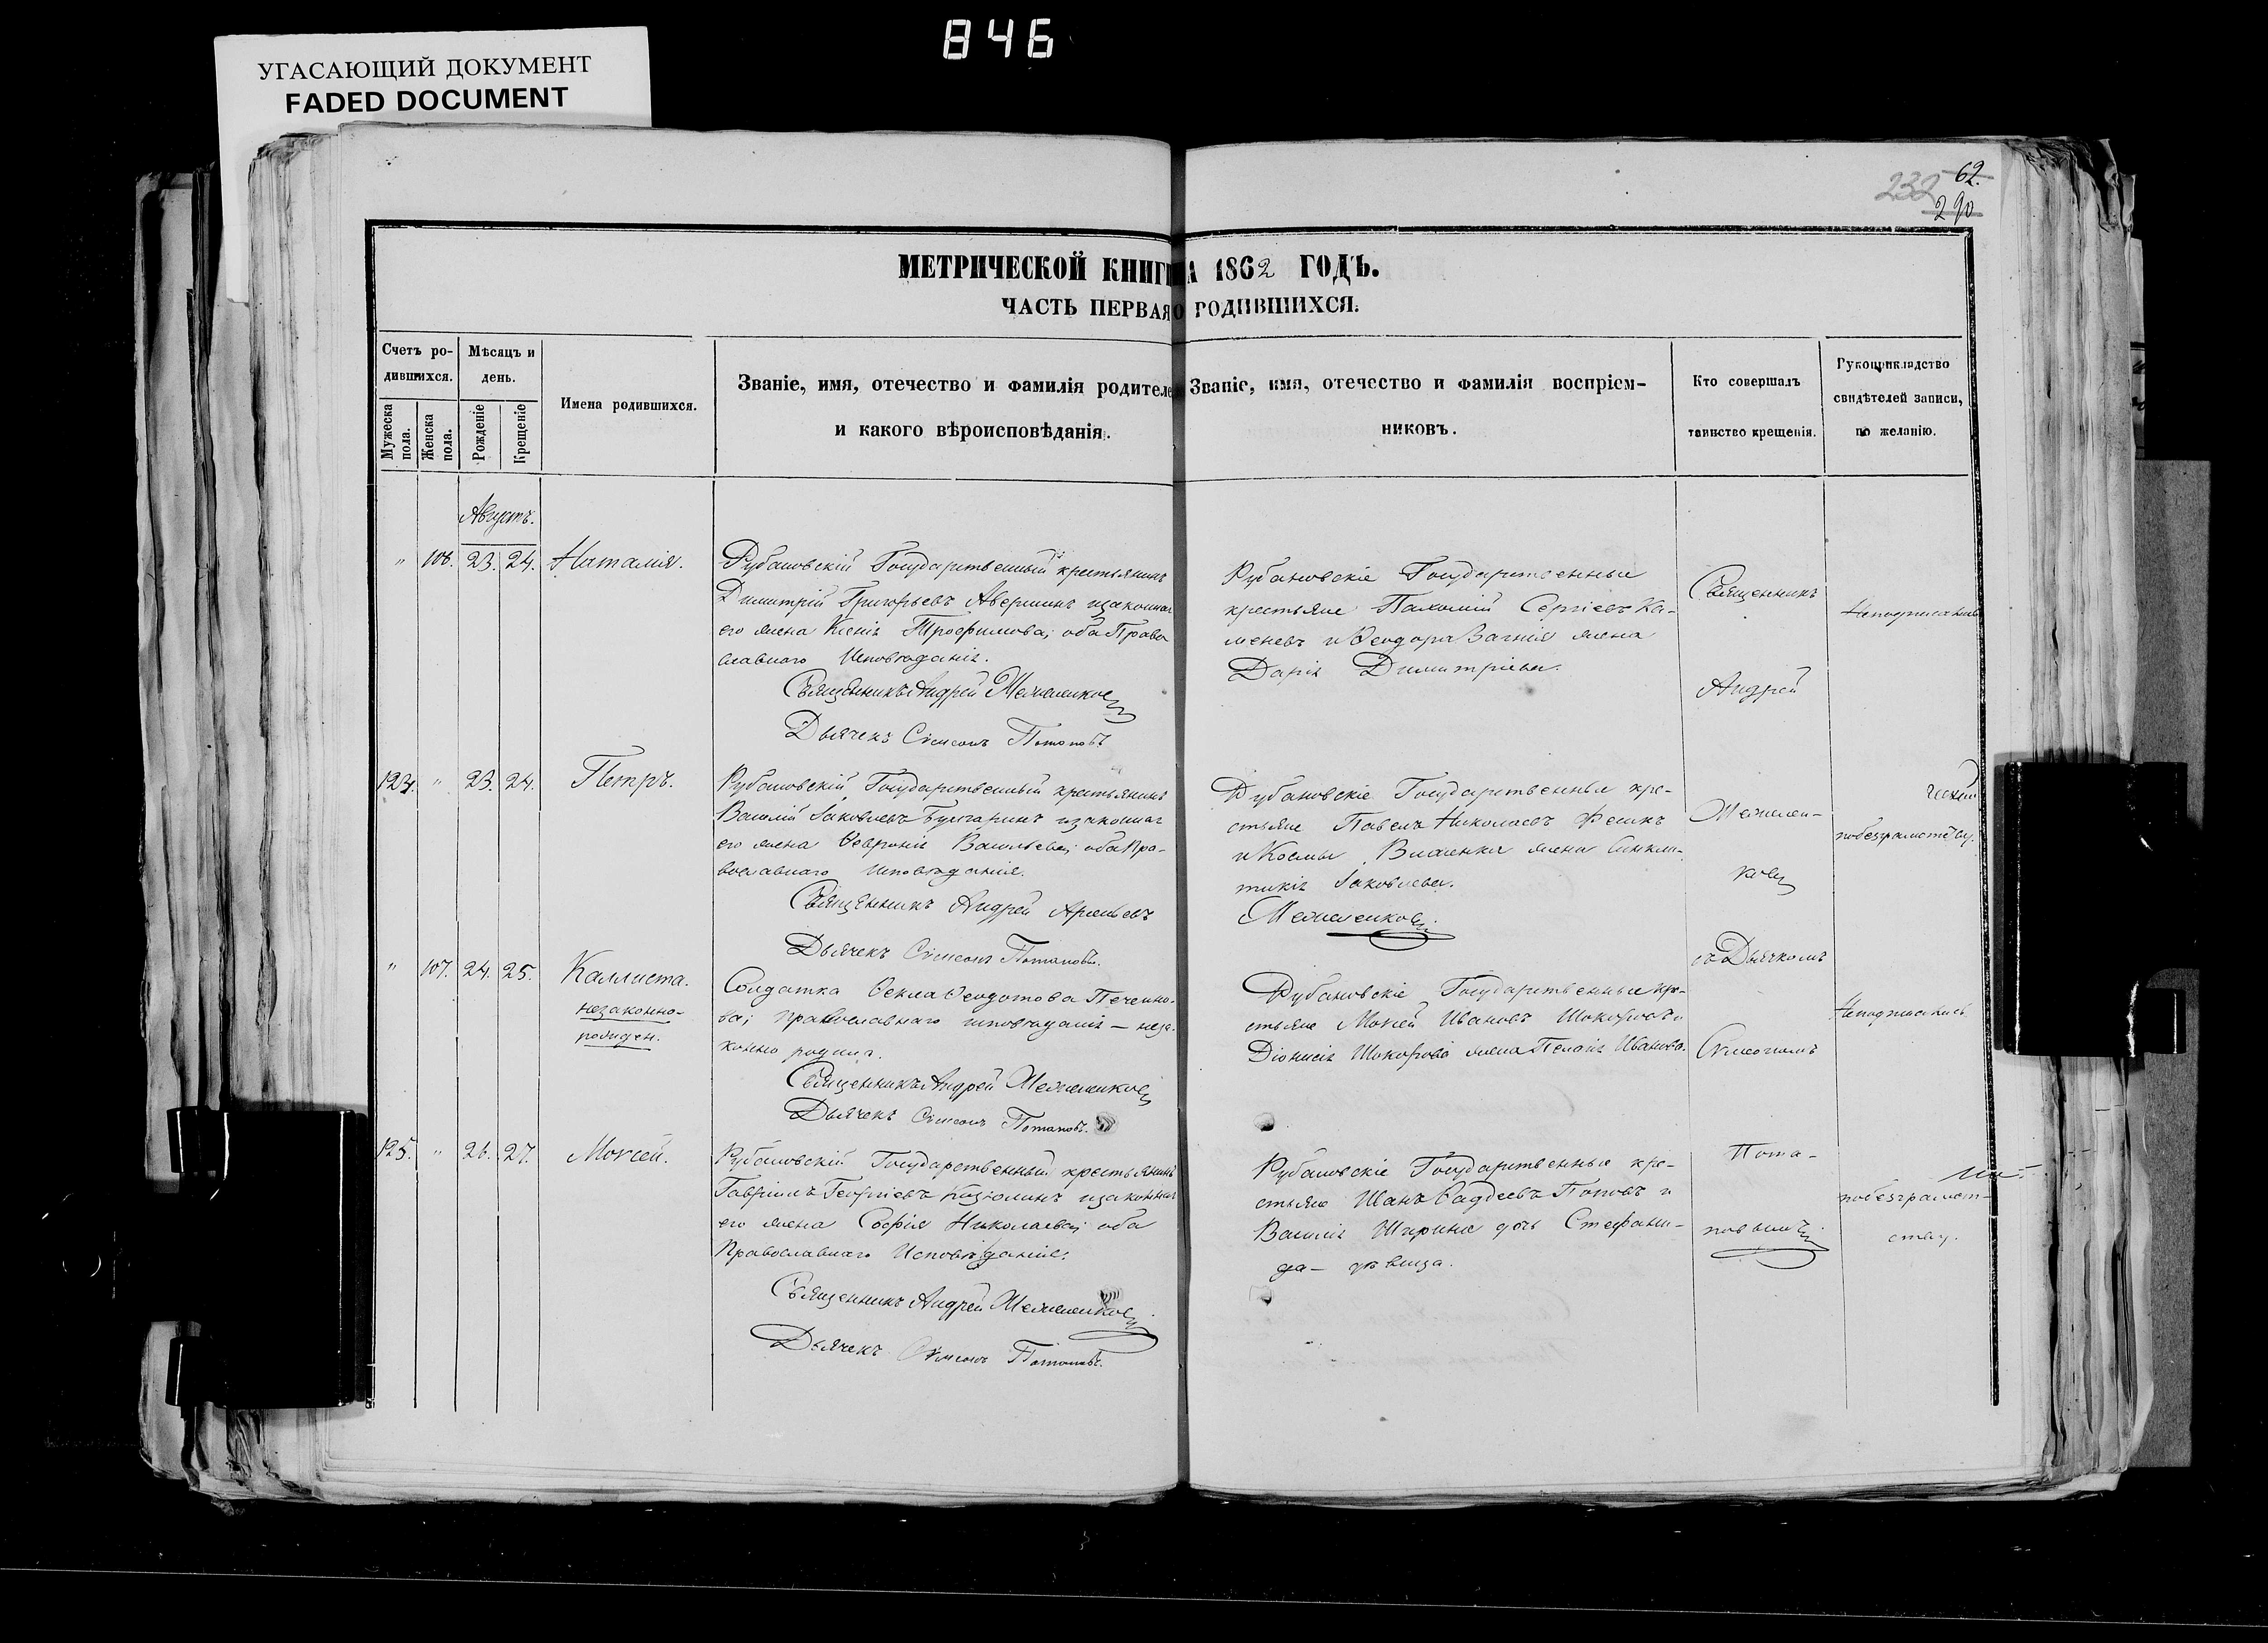 846
УГАСАЮЩИЙ ДОКУМЕНТ
FADED DOCUMENT
232
62.
290
МЕТРИЧЕСКОЙ КНИГИ НА 1862 ГОДЪ.
ЧАСТЬ ПЕРВАЯ О РОДИВШИХСЯ.
Счетъ ро-
дившихся.
Мужеска пола.
Женска пола.
Мѣсяцъ и
день.
Рожденіе
Крещеніе
Имена родившихся.
Званіе, имя, отечество и фамилія родителей
и какого вѣроисповѣданія.
Званіе, имя, отечество и фамилія воспріем-
никовъ.
Кто совершалъ
таинство крещенія.
Рукоприкладство
свидѣтелей записи,
по желанію.
Августъ.
" 106. 23. 24. Наталія.
Рубановскій Государственный крестьянинъ
Димитрій Григорьевъ Авершинъ и законная
его жена Ксенія Трофимова; оба Право
славнаго Исповѣданія.
Священникъ Андрей
Дьячекъ Сѵмеонъ Потаповъ
Рубановскіе Государственные
крестьяне Пахомій Сергіевъ Ка-
меневъ и Ѳеодора жена
Дарія Димитріева.
124. " 23. 24. Петръ.
Рубановскій Государственный крестьянинъ
Василій Іаковлевъ и законная
его жена Ѳевронія Васильева; оба Пра-
вославнаго Исповѣданія.
Священникъ Андрей Арсеньевъ
Дьячекъ Сѵмеонъ Потаповъ.
Рубановскіе Государственные кре-
стьяне Павелъ Николаевъ
и Космы жена Синкли-
тикія Іаковлева.
" 107. 24. 25. Каллиста.
незаконно-
рожден.
Солдатка Ѳекла Ѳеодотова Печено-
ва; православнаго исповѣданія — неза-
конно родила.
Священникъ Андрей
Дьячекъ Сѵмеонъ Потаповъ.
Рубановскіе Государственные кре-
стьяне Мокей Ивановъ и
Діонисія жена Пелагія Иванова.
125. " 26. 27. Моисей.
Рубановскій Государственный крестьянинъ
Гавріилъ Георгіевъ Козюлинъ и законная
его жена Софія Николаева; оба
Православнаго Исповѣданія.
Священникъ Андрей
Дьячекъ Сѵмеонъ Потаповъ.
Рубановскіе Государственные кре-
стьяне Иванъ Ѳаддеевъ Поповъ и
Василія Ширина дочь Стефани-
да — дѣвица.
Священникъ
Андрей
съ Дьячкомъ
Сѵмеономъ
Пота-
повымъ
Неподписались
по безграмотству.
Неподписались
по безграмот-
ству.